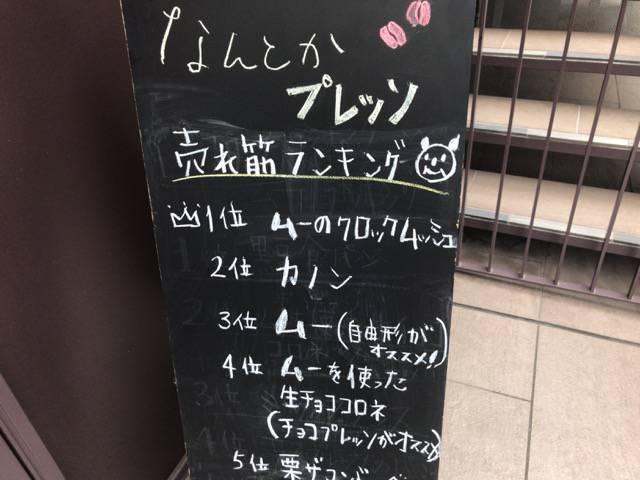 なんとか
プレッソ
売れ筋ランキング
1位 ムーのクロックムッシュ
2位 カノン
3位 ムー(自由形が
オススメ!)
4位 ムーを使った
生チョココロネ
(チョコプレッソがオススメ)
5位 栗ザコンバ